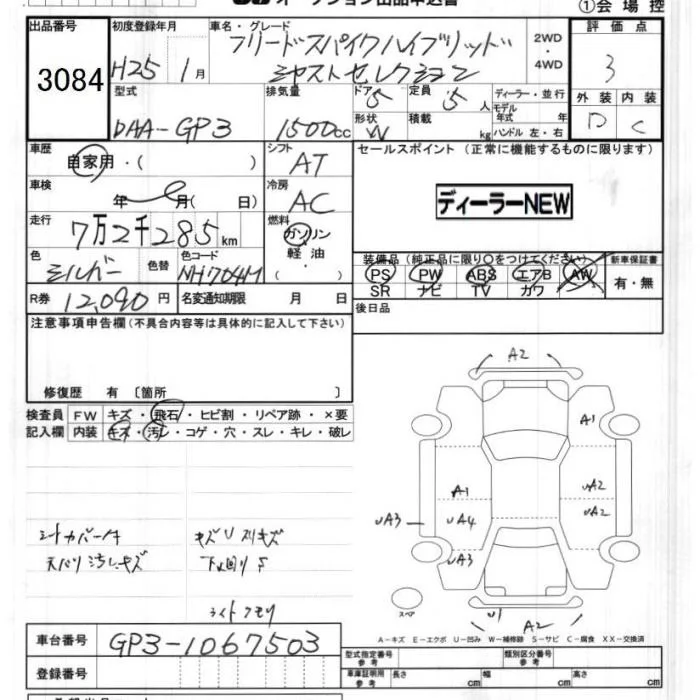 オークション出品申込書
①会 場 控
出品番号 3084
初度登録年月 H25 1月
車名・グレード フリードスパイクハイブリッド
ジャストセレクション
2WD
・
4WD
評 価 点
3
外 装 内 装
D C
型式 DAA-GP3
排気量 1500cc
ドア 5
定員 5人
形状 W
積載 kg
ディーラー・並行
モデル年式 年
ハンドル 左・右
車歴 自家用・( )
シフト AT
セールスポイント (正常に機能するものに限ります)
ディーラーNEW
車検 年 月( 日)
冷房 AC
走行 7万2千285km
燃料 ガソリン
軽 油
( )
色 シルバー 色替
色コード NH704M
装備品 (純正品に限り○をつけてください)
PS PW ABS エアB AW
SR ナビ TV カワ
新車保証書
有・無
R券 12,090円
名変通知期限 月 日
後日品
注意事項申告欄 (不具合内容等は具体的に記入して下さい)
修復歴 有 〔箇所 〕
検査員 FW キズ・飛石・ヒビ割・リペア跡・×要
記入欄 内装 キズ・汚レ・コゲ・穴・スレ・キレ・破レ
シートカバー付
天バリ汚レキズ
キズUスリキズ
下回りS
ライトクモリ
A2
A1
A1
UA2
UA2
UA3
UA4
UA3
スペア
U1
A2
A-キズ E-エクボ U-凹み W-補修跡 S-サビ C-腐食 XX-交換済
車台番号 GP3-1067503
登録番号
型式指定番号 参考
類別区分番号 参考
車庫証明用 参考 長さ cm 幅 cm 高さ cm